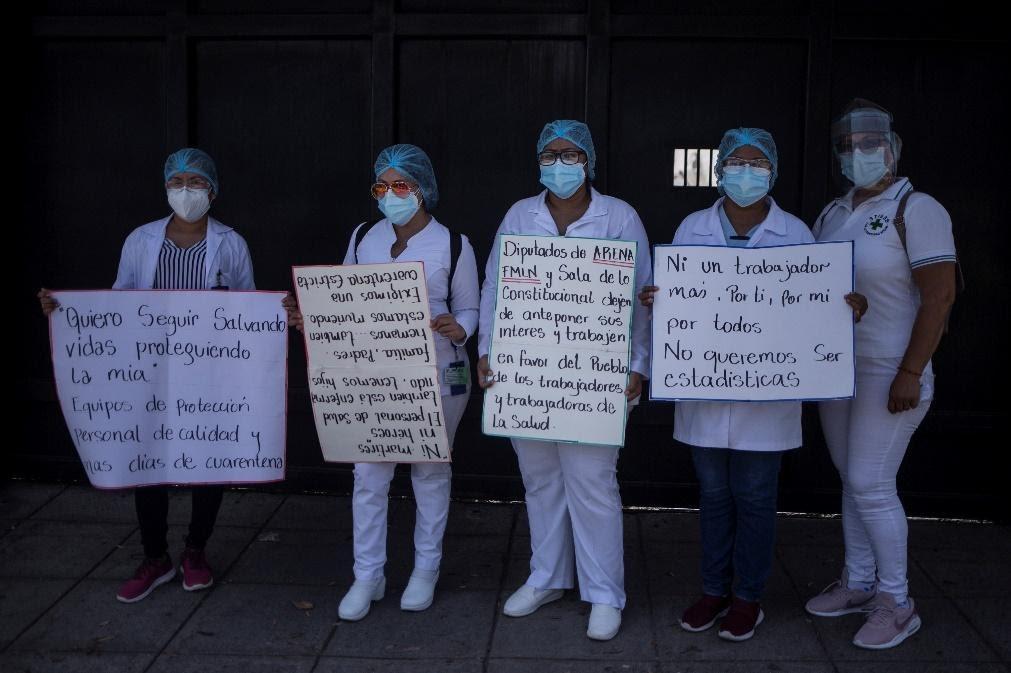 "Quiero Seguir Salvando
vidas proteguiendo
la mia"
Equipos de Protección
Personal de calidad y
mas días de cuarentena
"Ni martires
ni heroes
El personal de Salud
tambien está enferma
ndo. tenemos hijos
familia, Padres.
hermanos. tambien
estamos muriendo
Exigimos una
Cuarentena Estricta
Diputados de ARENA
FMLN y Sala de lo
Constitucional dejen
de anteponer sus
interes y trabajen
en favor del Pueblo
de los trabajadores
y trabajadoras de
La Salud.
Ni un trabajador
mas. Por ti, por mi
por todos
No queremos Ser
estadisticas